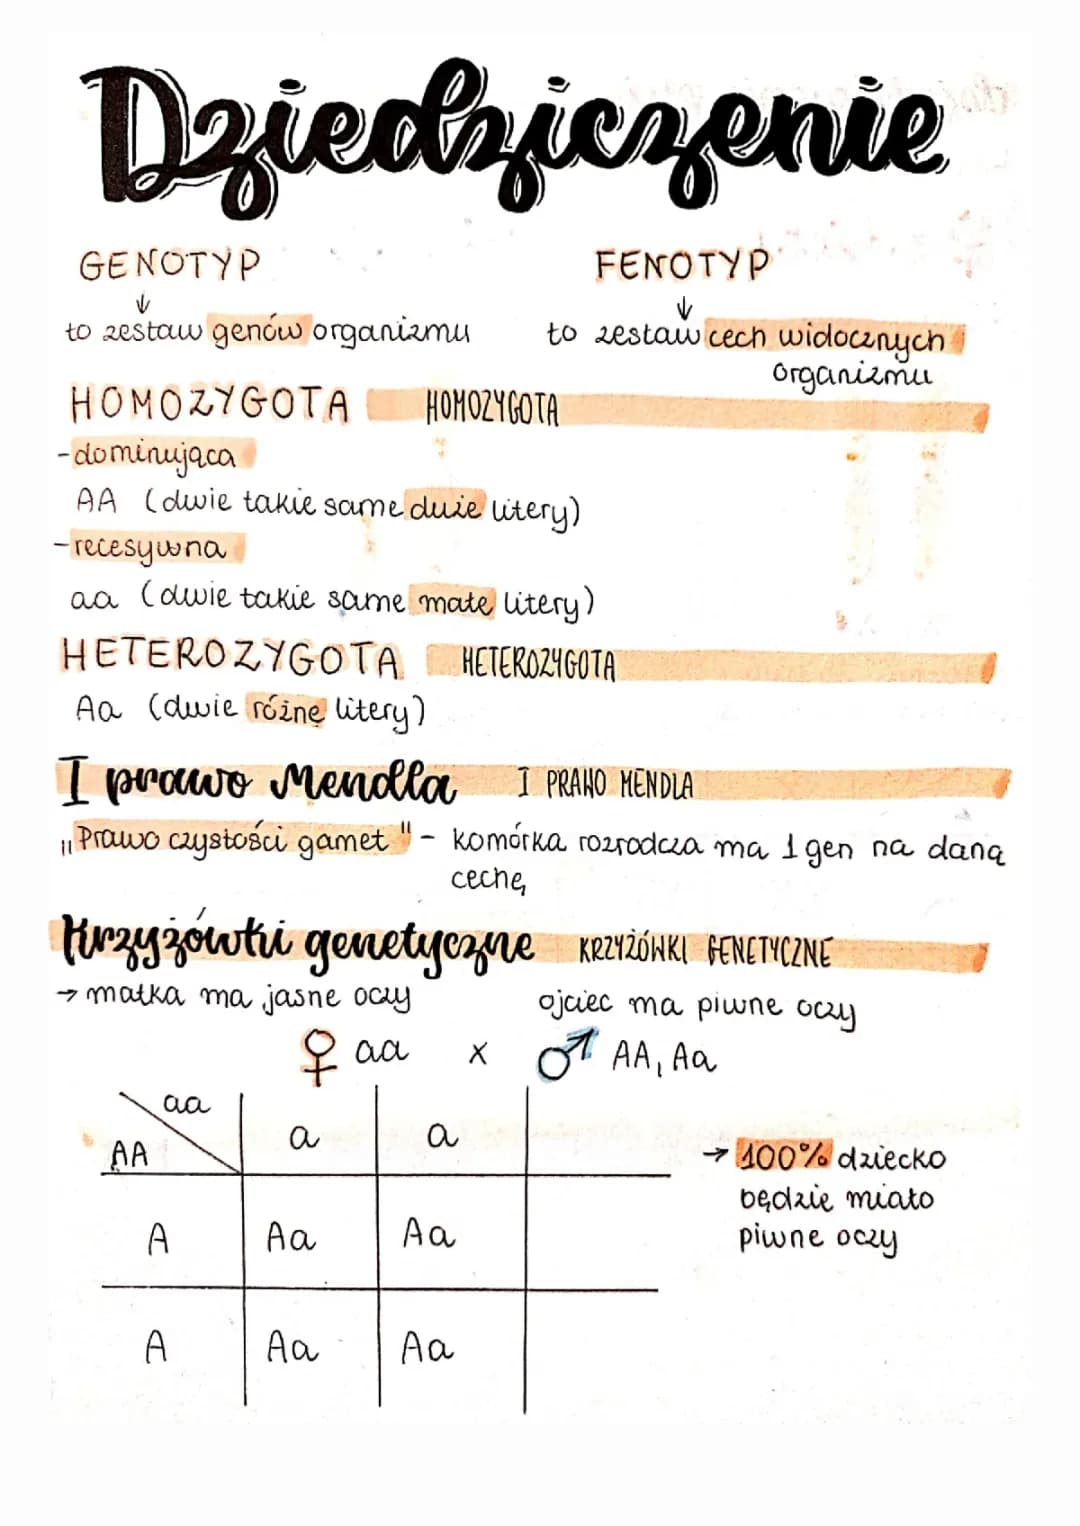 Dziedziczenie
GENOTYP FENOTYP
↓ ↓
to zestaw genów organizmu to zestaw cech widocznych
organizmu
HOMOZYGOTA HOMOZYGOTA
-dominująca
AA (dwie takie same duże litery)
-recesywna
aa (dwie takie same małe litery)
HETEROZYGOTA HETEROZYGOTA
Aa (dwie różne litery)
I prawo Mendla I PRAWO MENDLA
„Prawo czystości gamet" - komórka rozrodcza ma 1 gen na daną
cechę
Krzyżówki genetyczne KRZYŻÓWKI GENETYCZNE
→ matka ma jasne oczy ojciec ma piwne oczy
♀ aa x ♂ AA, Aa
aa
AA a a
→ 100% dziecko
będzie miało
A Aa Aa piwne oczy
A Aa Aa